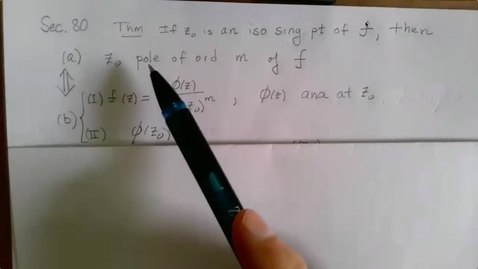 Sec. 80 Thm If z₀ is an iso sing. pt of f, then
(a) z₀ pole of ord m of f
⇕
(b) { (I) f(z) = φ(z) / z₀)ᵐ , φ(z) ana at z₀
(II) φ(z₀)